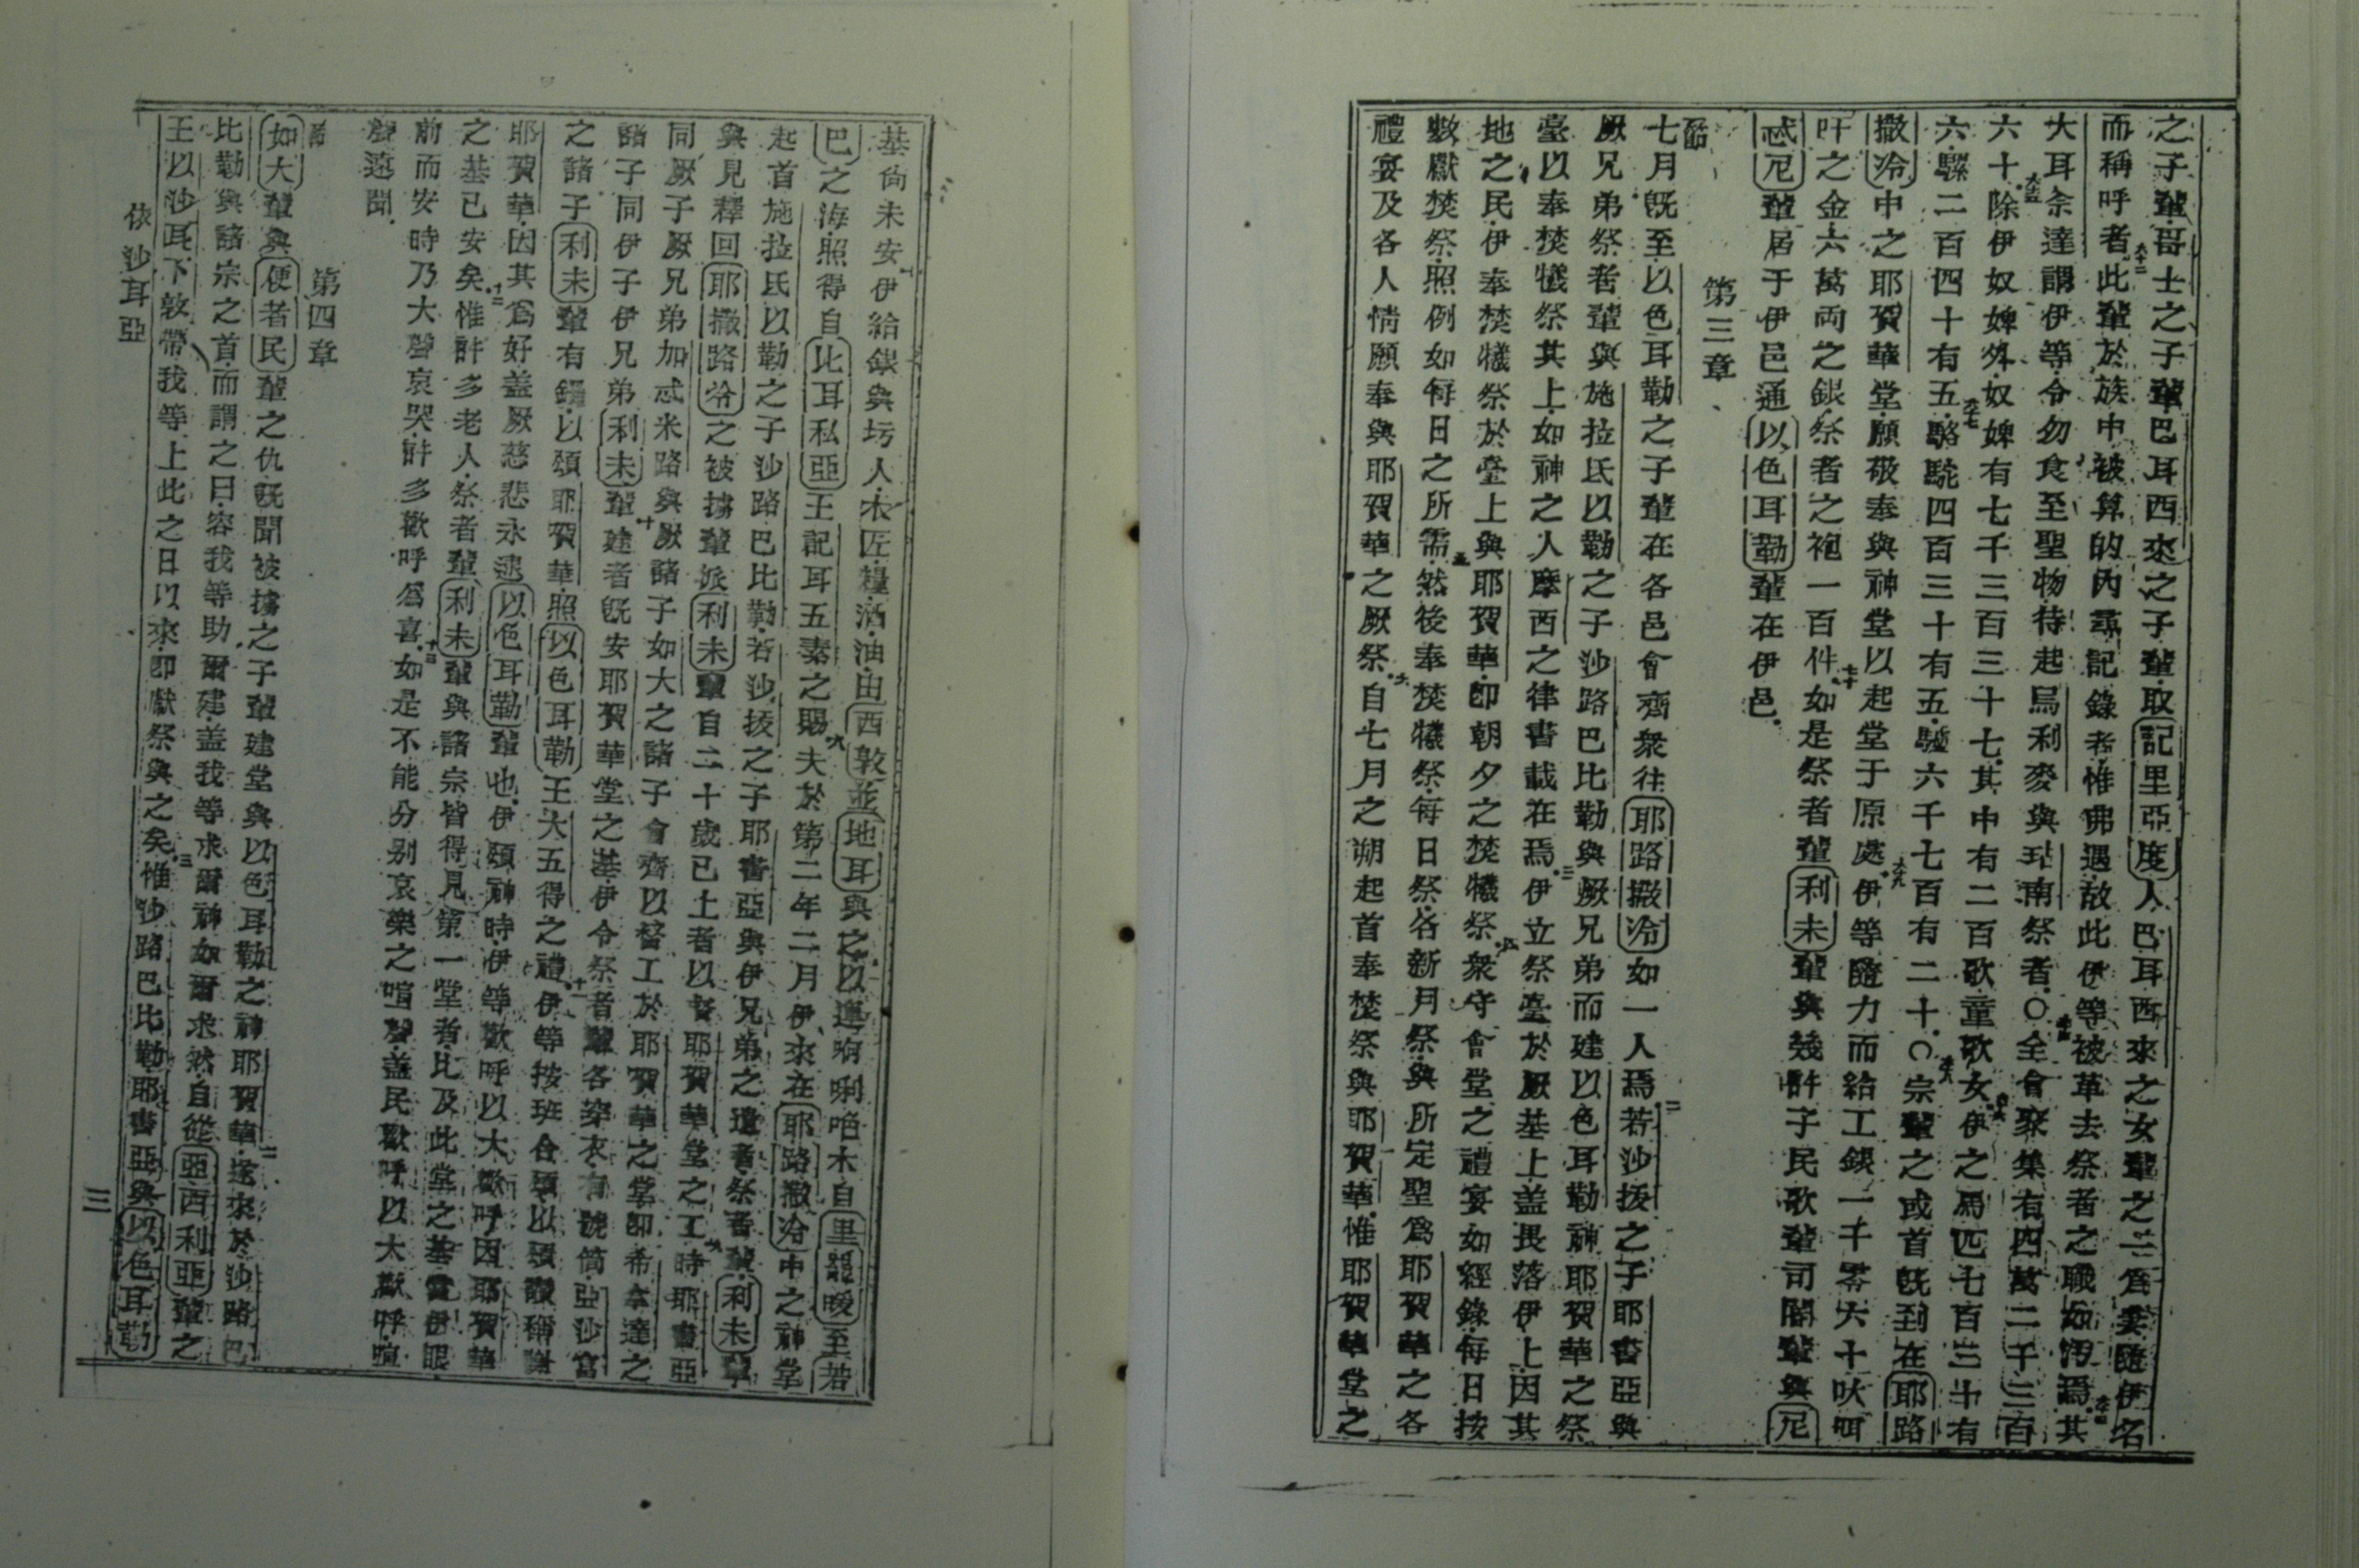 之子輩哥士之子輩巴耳西來之子輩取記里亞度人巴耳西來之女輩之一爲妻隨伊名
而稱呼者六十二此輩於族中被算的內尋記錄者惟弗遇故此伊等被革去祭者之職如汚焉其
六十三大耳沙達謂伊等令勿食至聖物待起烏利麥與玷南祭者○六十四全會聚集有四萬二千三百
六十六十五除伊奴婢外奴婢有七千三百三十七其中有二百歌童歌女六十六伊之馬匹七百三十有
六騾二百四十有五六十七駱駝四百三十有五驢六千七百有二十○六十八宗輩之或首旣到在耶路
撒冷中之耶賀華堂願敬奉與神堂以起堂于原處六十九伊等隨力而給工銀一千零六十吠啞
吽之金六萬両之銀祭者之袍一百件七十如是祭者輩利未輩與幾許子民歌輩司閽輩與尼
忒尼輩居于伊邑通以色耳勒輩在伊邑
第三章
一節七月旣至以色耳勒之子輩在各邑會齊衆往耶路撒冷如一人焉二若沙拔之子耶書亞與
厥兄弟祭者輩與施拉氐以勒之子沙路巴比勒與厥兄弟而建以色耳勒神耶賀華之祭
臺以奉焚犧祭其上如神之人摩西之律書載在焉三伊立祭臺於厥基上盖畏落伊上因其
地之民伊奉焚犧祭於臺上與耶賀華卽朝夕之焚犧祭四衆守會堂之禮宴如經錄每日按
數獻焚祭照例如每日之所需五然後奉焚犧祭每日祭各新月祭與所定聖爲耶賀華之各
禮宴及各人情願奉與耶賀華之厥祭六自七月之朔起首奉焚祭與耶賀華惟耶賀華堂之
基尙未安七伊給銀與圬人木匠糧酒油由西敦並地耳與之以運栢唎咟木自里巴暖至若
巴之海照得自比耳私亞王記耳五素之賜八夫於第二年二月伊來在耶路撒冷中之神堂
起首施拉氐以勒之子沙路巴比勒若沙拔之子耶書亞與伊兄弟之遺者祭者輩利未輩
與見釋回耶撒路冷之被擄輩派利未輩自二十歲已上者以督耶賀華堂之工九時耶書亞
同厥子厥兄弟加忒米路與厥諸子如大之諸子會齊以督工於耶賀華之堂卽希拿達之
諸子同伊子伊兄弟利未輩十建者旣安耶賀華堂之基伊令祭者輩各穿衣有號筒亞沙富
之諸子利未輩有鑼以頌耶賀華照以色耳勒王大五得之禮十一伊等按班合頌以頌讚稱謝
耶賀華因其爲好盖厥慈悲永遠以色耳勒輩也伊頌神時伊等歡呼以大歡呼因耶賀華
之基已安矣十二惟許多老人祭者輩利未輩與諸宗皆得見第一堂者比及此堂之基置伊眼
前而安時乃大聲哀哭許多歡呼爲喜十三如是不能分别哀樂之喧聲盖民歡呼以大歡呼喧
聲遠聞
第四章
一節如大輩與便者民輩之仇旣聞被擄之子輩建堂與以色耳勒之神耶賀華二遂來於沙路巴
比勒與諸宗之首而謂之曰容我等助爾建盖我等求爾神如爾求然自從亞西利亞輩之
王以沙耳下敦帶我等上此之日以來卽獻祭與之矣三惟沙路巴比勒耶書亞與以色耳勒
依沙耳亞 三